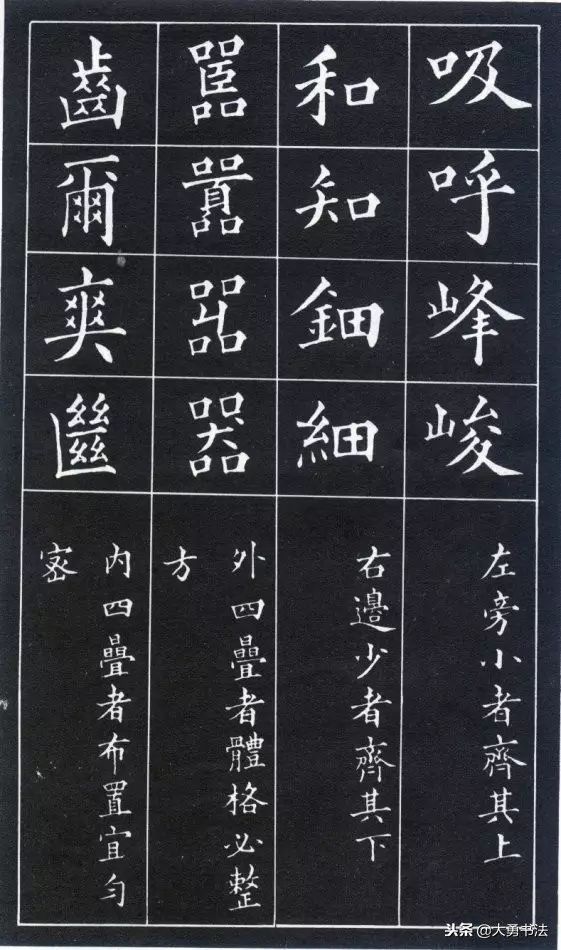 吸呼峰峻
左旁小者齊其上
和知鈿細
右邊少者齊其下
嚚囂嘂器
外四疊者體格必整
方
齒爾爽㡭
内四疊者布置宜勻
密
头条 @大勇书法